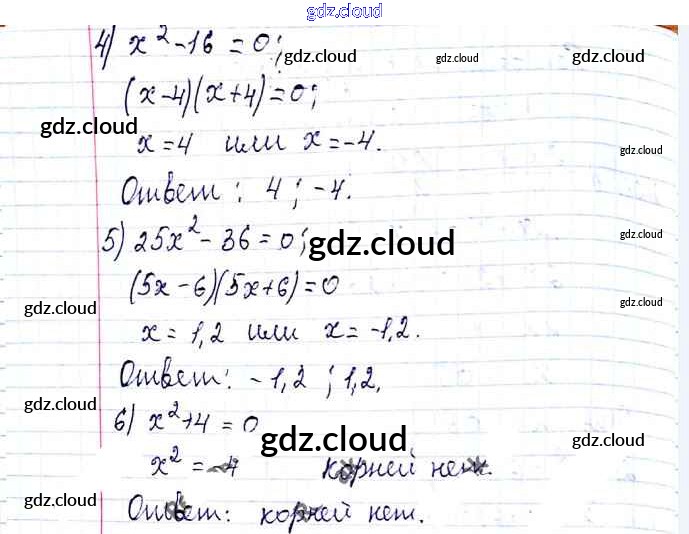 gdz.cloud
4) x² - 16 = 0;
gdz.cloud gdz.cloud gdz.cloud
(x-4)(x+4)=0;
gdz.cloud
x=4 или x=-4.
gdz.cloud
Ответ: 4; -4.
5) 25x² - 36 = 0;
gdz.cloud gdz.cloud
(5x-6)(5x+6)=0
gdz.cloud gdz.cloud
x = 1,2 или x = -1,2.
Ответ: -1,2; 1,2.
gdz.cloud
6) x²+4 = 0
gdz.cloud gdz.cloud gdz.cloud
x² = -4 корней нет.
gdz.cloud gdz.cloud gdz.cloud
Ответ: корней нет.